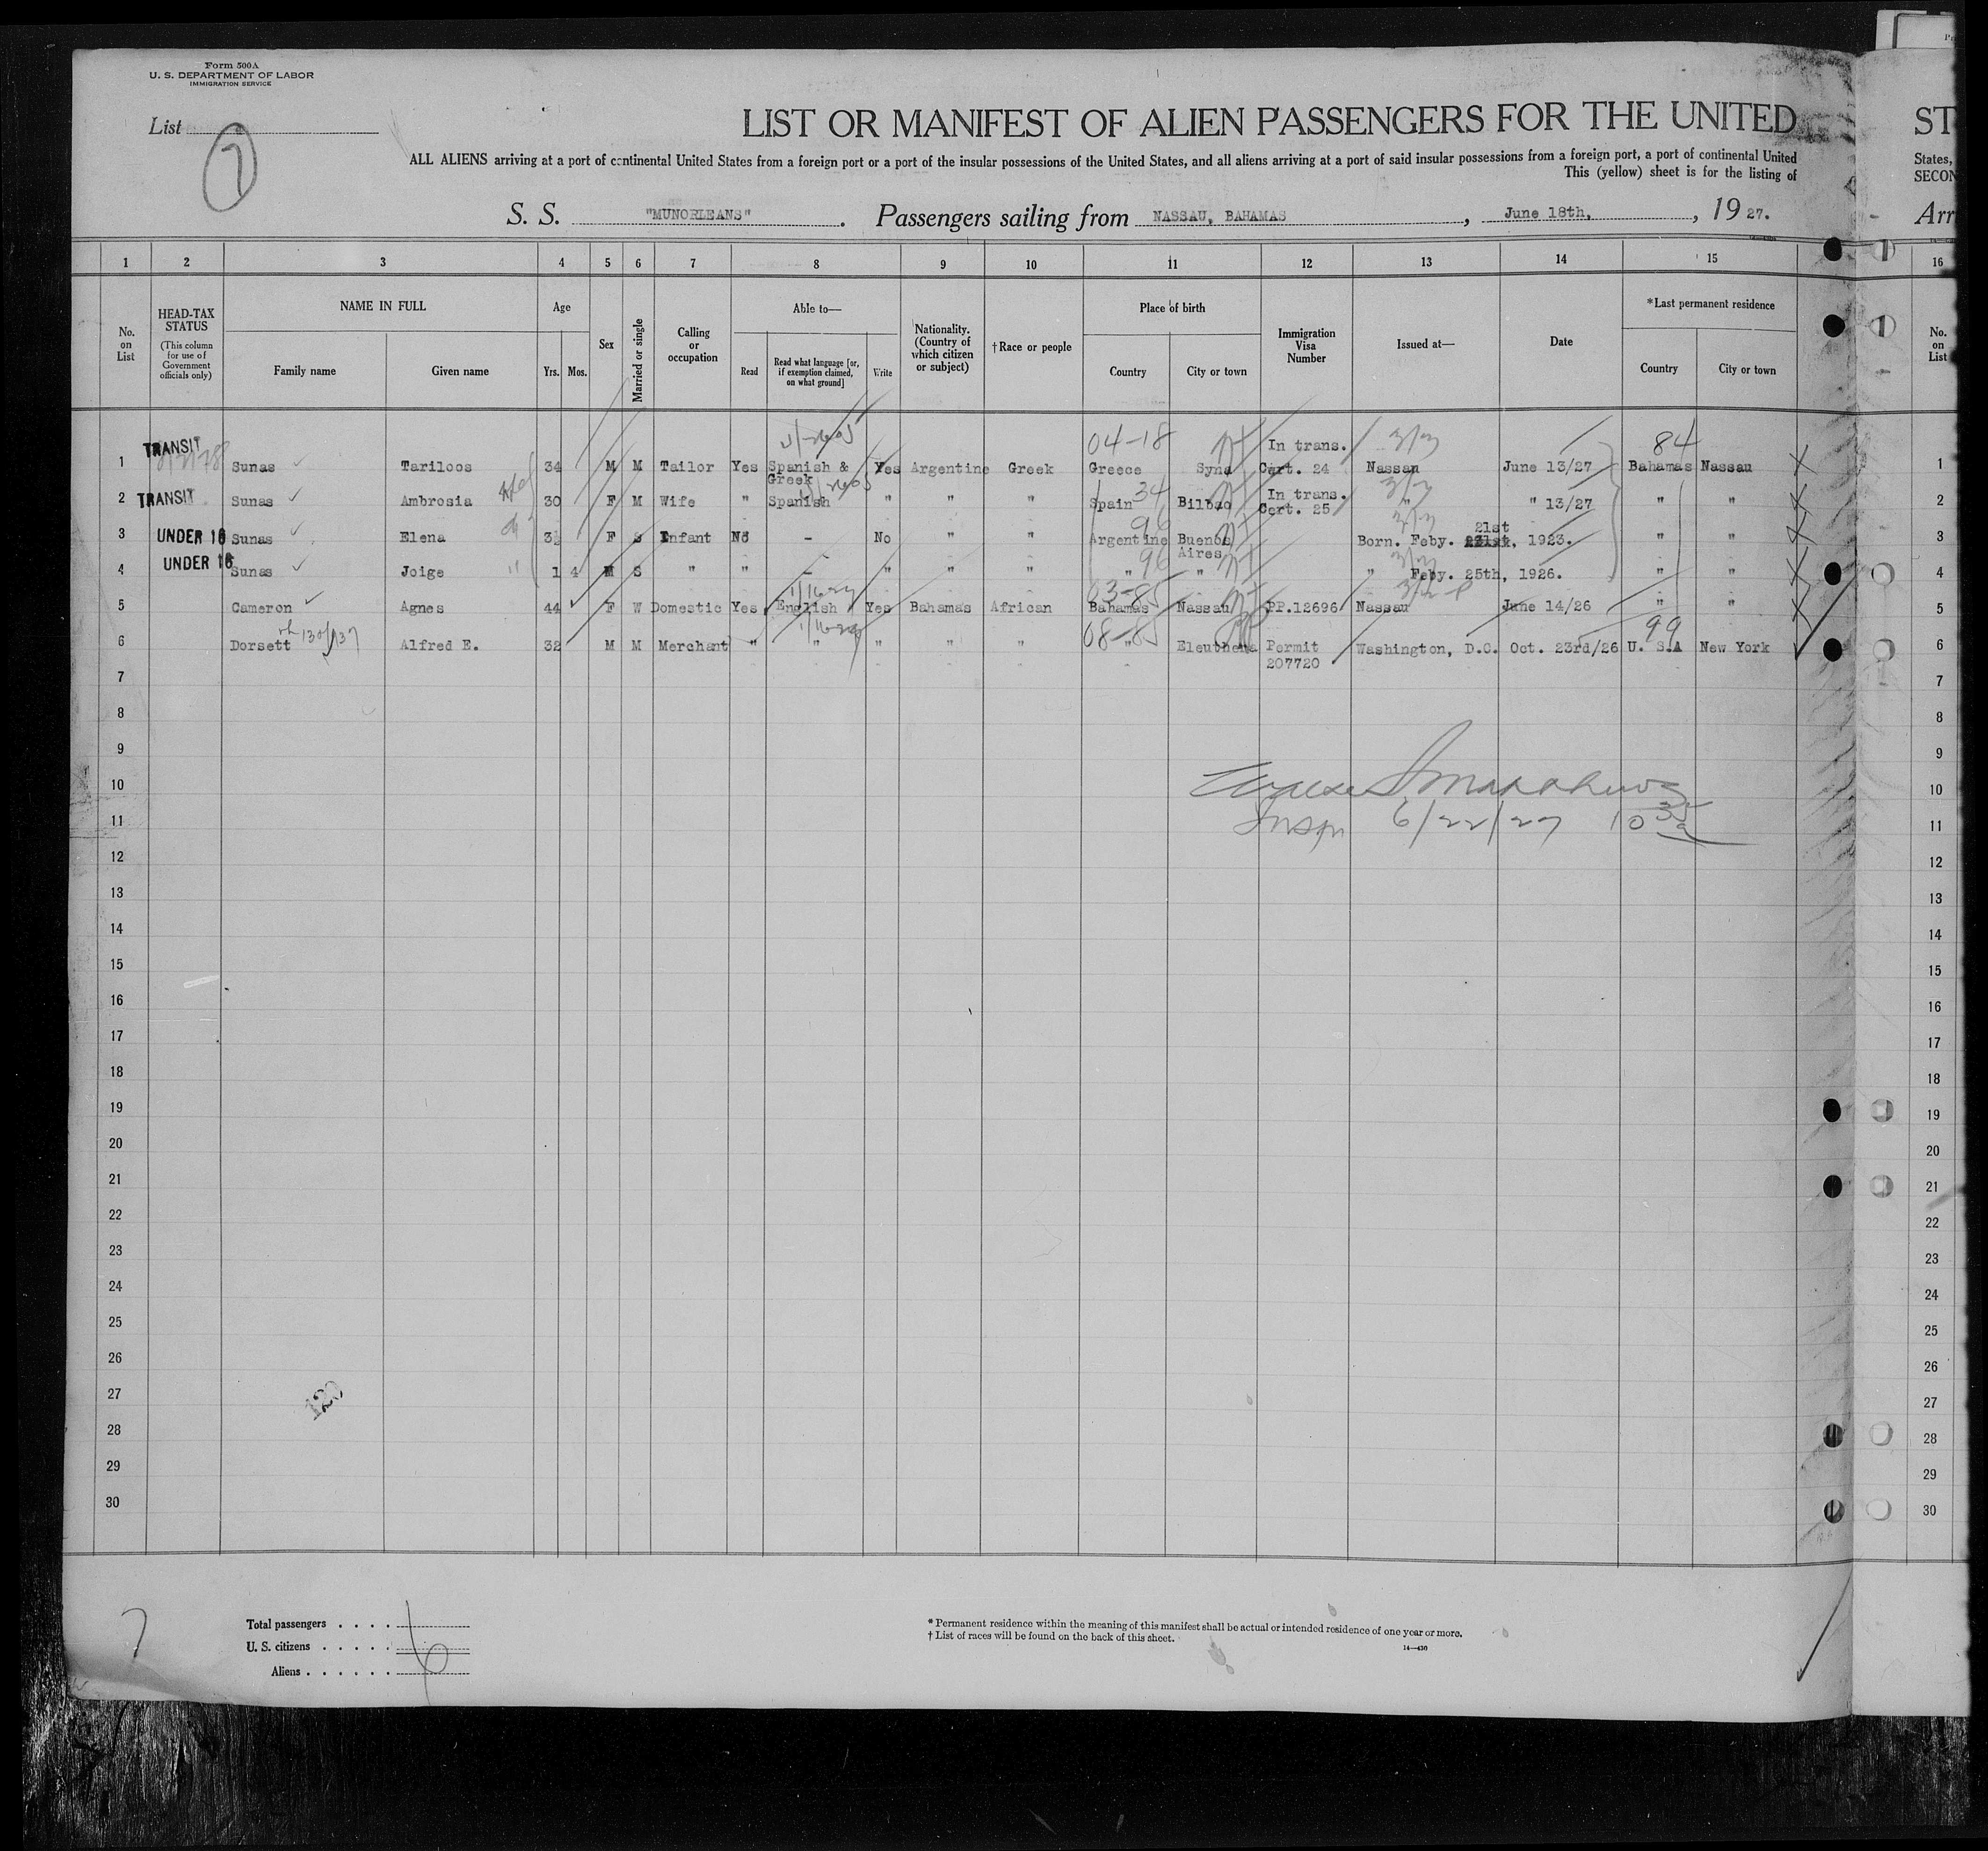 Form 500A
U. S. DEPARTMENT OF LABOR
IMMIGRATION SERVICE
List
7
LIST OR MANIFEST OF ALIEN PASSENGERS FOR THE UNITED
ST
ALL ALIENS arriving at a port of continental United States from a foreign port or a port of the insular possessions of the United States, and all aliens arriving at a port of said insular possessions from a foreign port, a port of continental United
States,
This (yellow) sheet is for the listing of
SECON
S. S. "MUNORLEANS". Passengers sailing from NASSAU, BAHAMAS, June 18th, , 1927.
Arr
1 2 3 4 5 6 7 8 9 10 11 12 13 14 15 16
No. on List
HEAD-TAX STATUS (This column for use of Government officials only)
NAME IN FULL
Family name Given name
Age
Yrs. Mos.
Sex
Married or single
Calling or occupation
Able to—
Read Read what language [or, if exemption claimed, on what ground] Write
Nationality. (Country of which citizen or subject)
†Race or people
Place of birth
Country City or town
Immigration Visa Number
Issued at—
Date
*Last permanent residence
Country City or town
No. on List
04-18 84
TRANSIT In trans.
1 Sunas Tariloos 34 M M Tailor Yes Spanish & Greek Yes Argentine Greek Greece Syna Cert. 24 Nassau June 13/27 Bahamas Nassau 1
34 In trans.
2 TRANSIT Sunas Ambrosia 30 F M Wife " Spanish " " " Spain Bilbao Cert. 25 " " 13/27 " " 2
96 21st
3 UNDER 16 Sunas Elena 3½ F S Infant No - No " " Argentine Buenos Aires Born. Feby. , 1923. " " 3
96
4 UNDER 16 Sunas Joige 1 4 M S " " - " " " " " " Feby. 25th, 1926. " " 4
03-85
5 Cameron Agnes 44 F W Domestic Yes English Yes Bahamas African Bahamas Nassau PP.12696 Nassau June 14/26 " " 5
08-85 99
6 Dorsett Alfred E. 32 M M Merchant " " " " " " Eleuthera Permit 207720 Washington, D.C. Oct. 23rd/26 U. S.A New York 6
7 7
8 8
9 9
10 10
11 Insp 6/22/27 11
12 12
13 13
14 14
15 15
16 16
17 17
18 18
19 19
20 20
21 21
22 22
23 23
24 24
25 25
26 26
27 120 27
28 28
29 29
30 30
7
Total passengers . . . .
U. S. citizens . . . . .
Aliens . . . . . .
6
* Permanent residence within the meaning of this manifest shall be actual or intended residence of one year or more.
† List of races will be found on the back of this sheet.
14—430